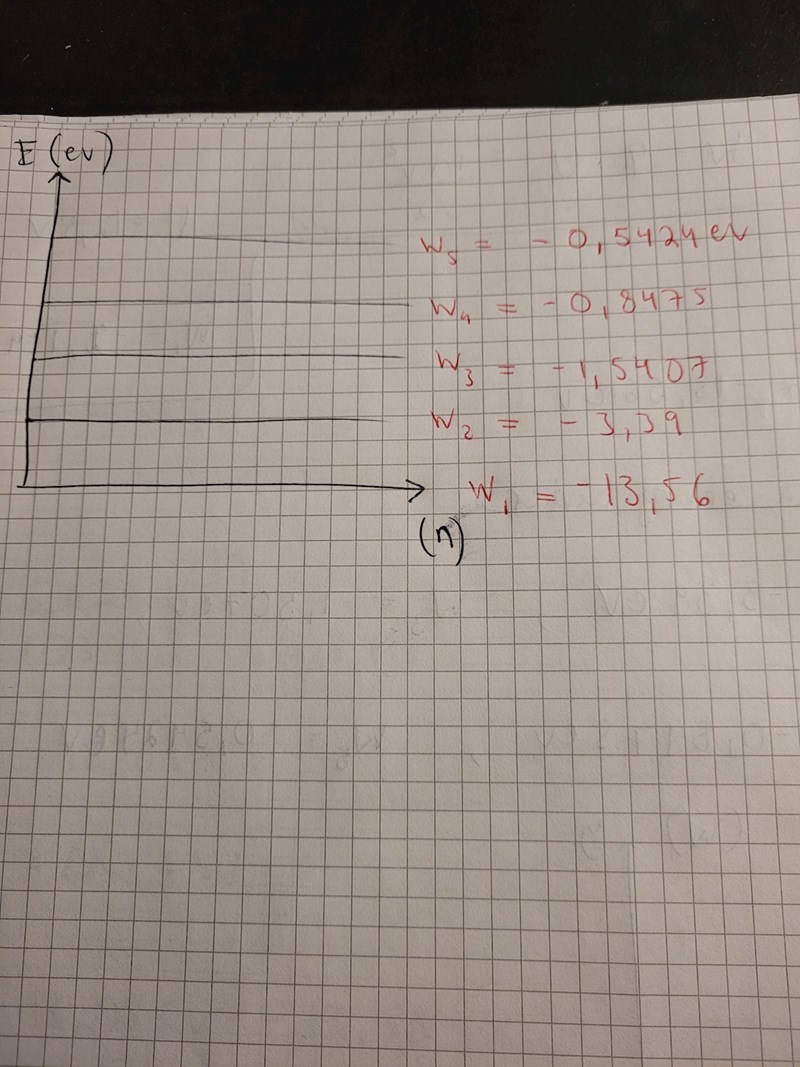 E (ev)
W5 = - 0,5424 ev
W4 = - 0,8475
W3 = - 1,5407
W2 = - 3,39
W1 = - 13,56
(n)